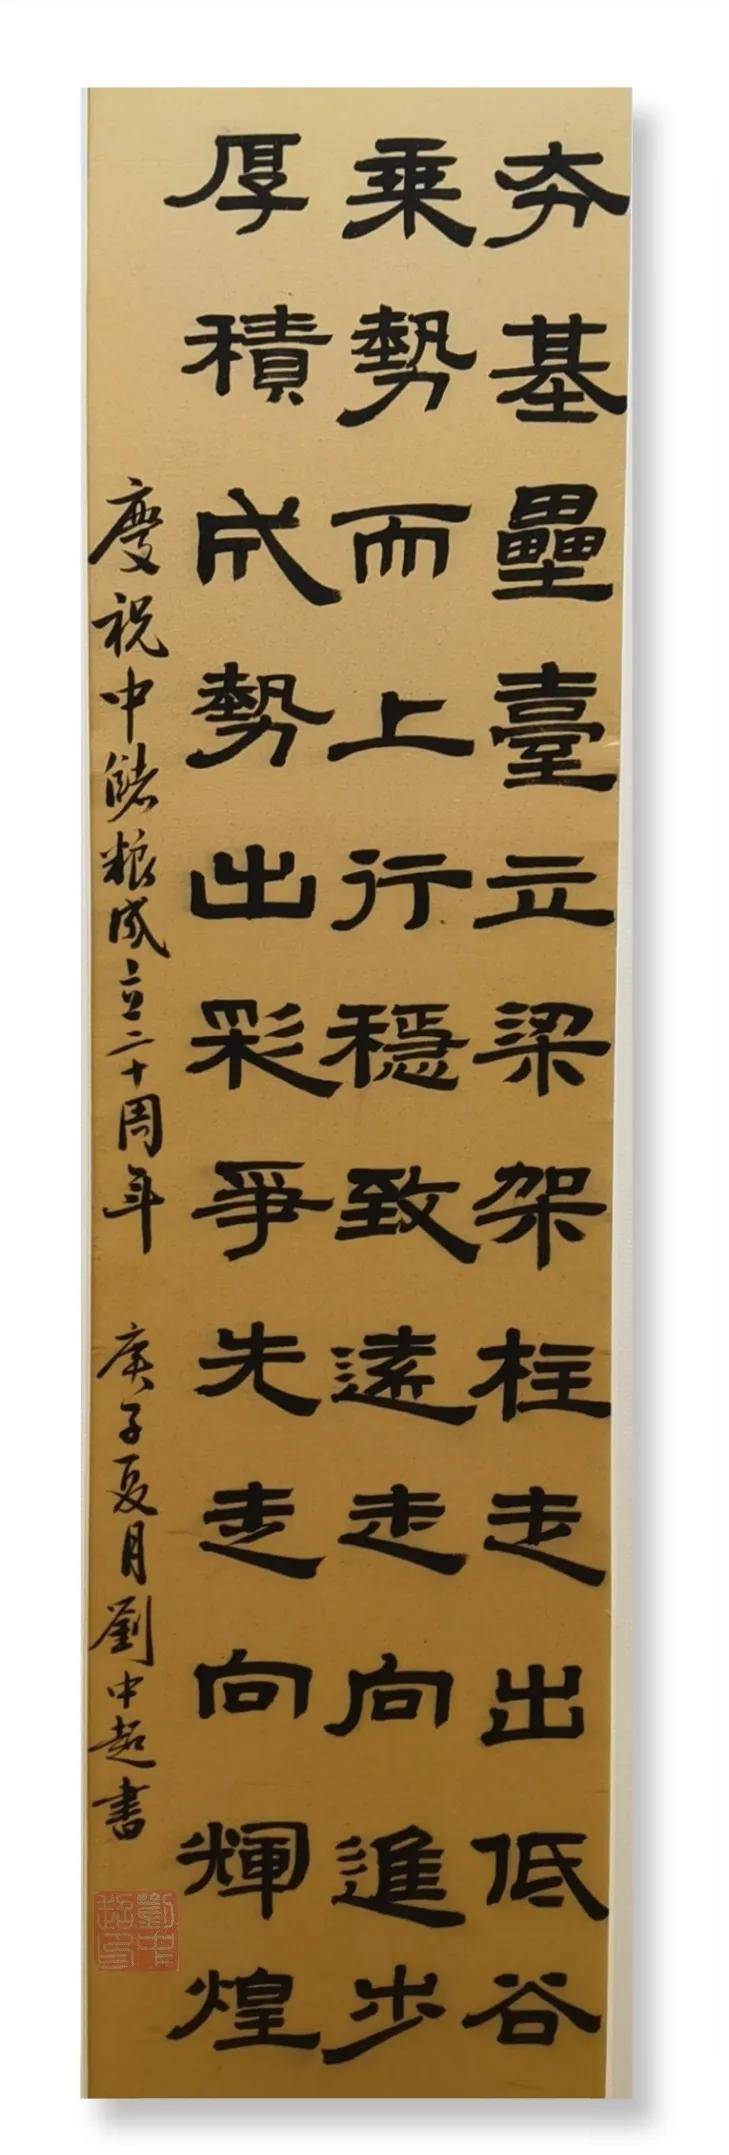 夯基壘臺立梁架柱走出低谷
乘勢而上行穩致遠走向進步
厚積成勢出彩爭先走向輝煌
慶祝中儲粮成立二十周年 庚子夏月劉中超書
劉中超印